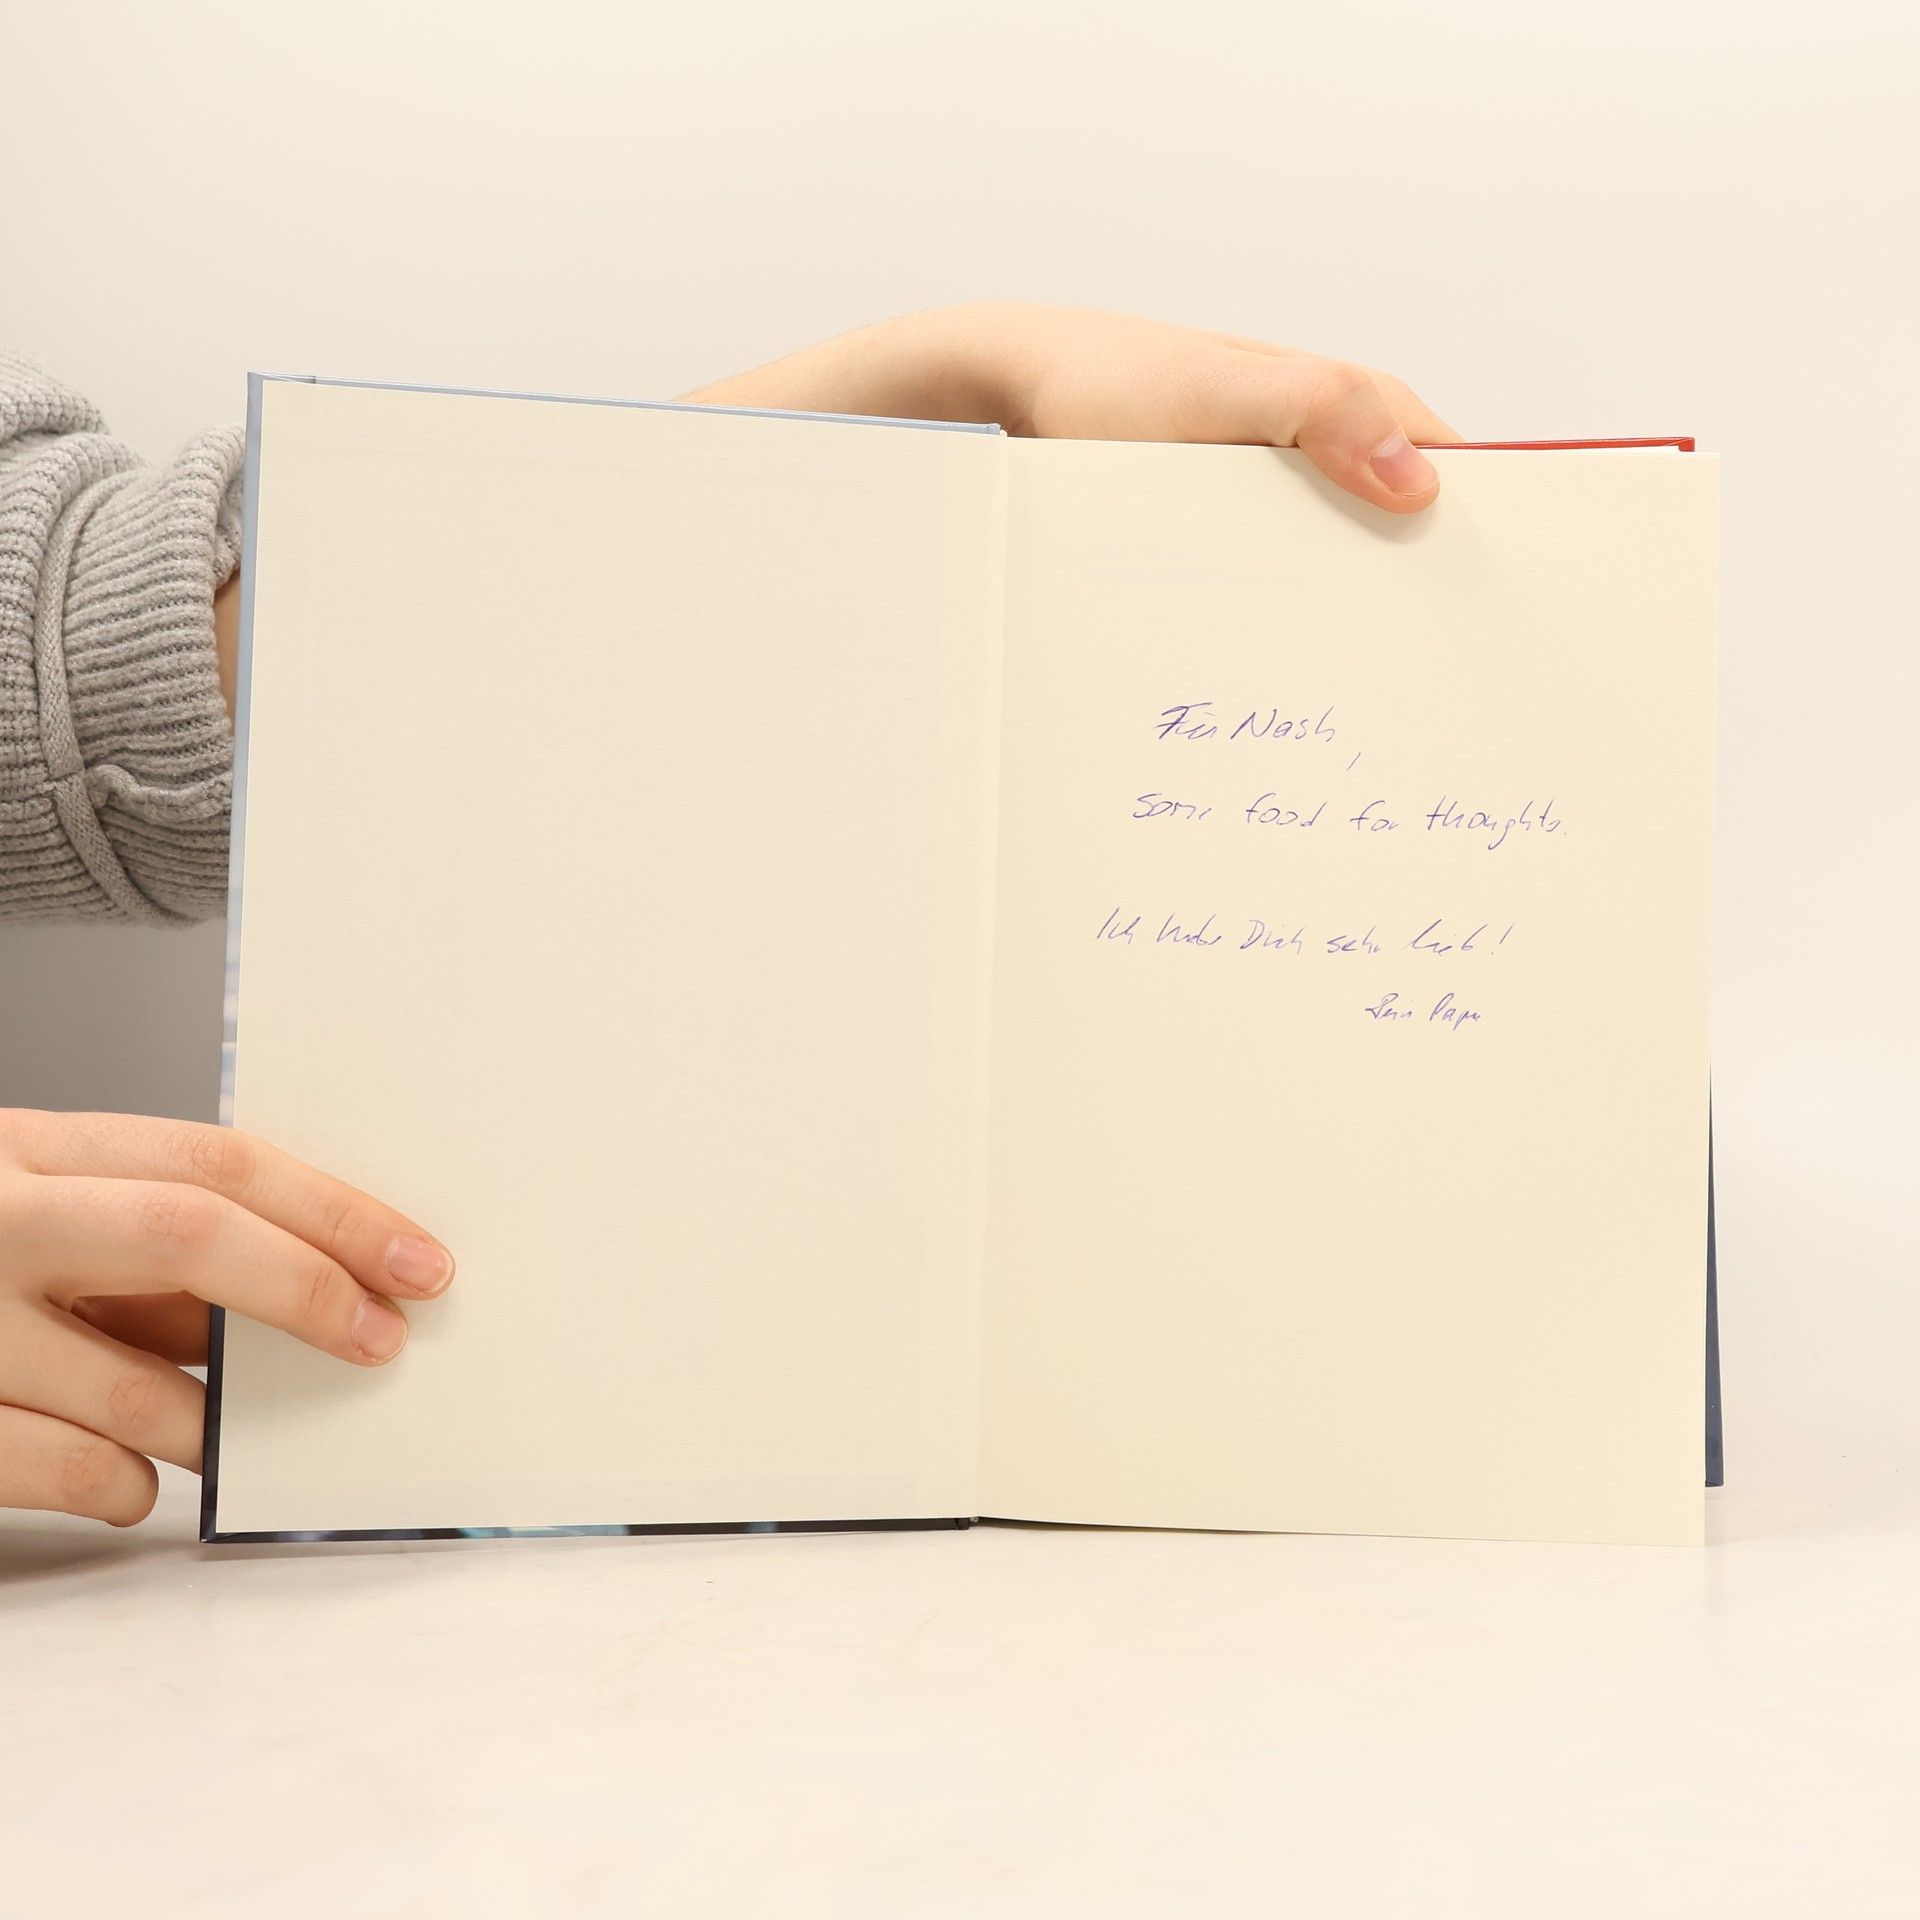 Für Nash,
some food for thoughts.
Ich habe Dich sehr lieb!
Dein Papa